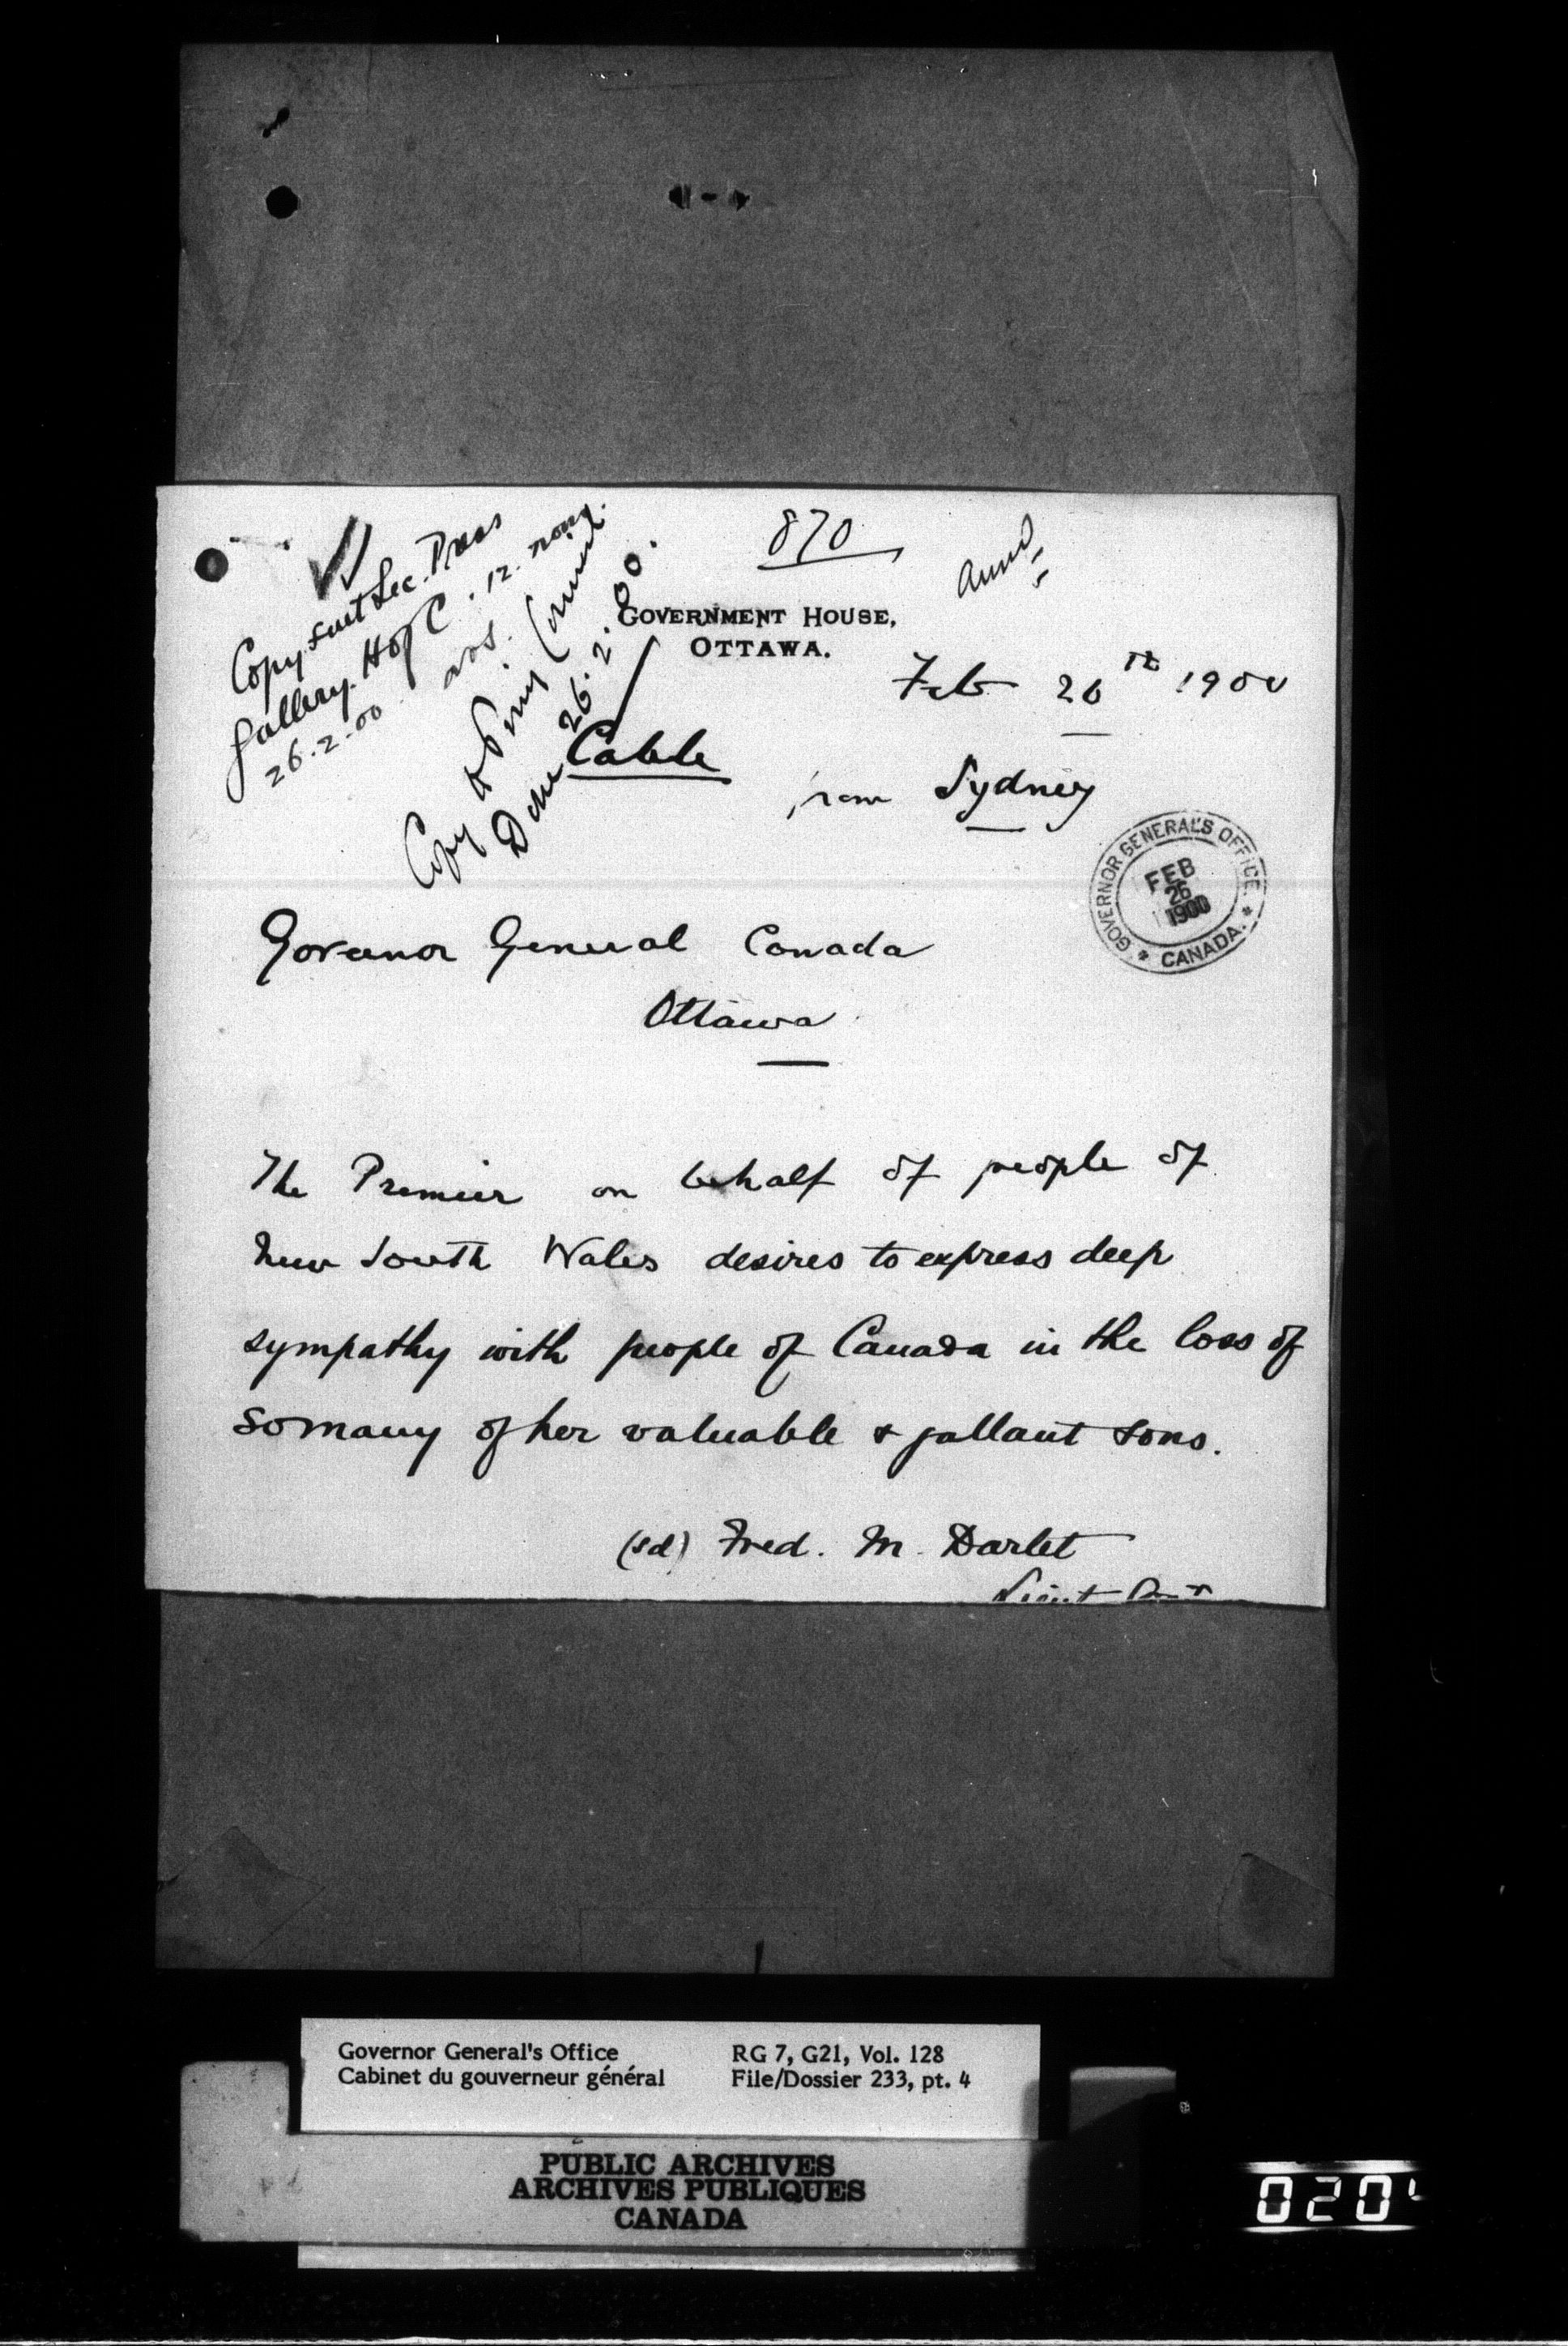 870
Copy sent Sec. Press
Gallery. H of C. 12. noon.
26.2.00.
Copy to Privy Council
Done 26.2.00.
GOVERNMENT HOUSE,
OTTAWA.
Feb 26th 1900
Cable
from Sydney
GOVERNOR GENERAL'S OFFICE.
FEB
26
1900
* CANADA. *
Governor General Canada
Ottawa
The Premier on behalf of people of
New South Wales desires to express deep
sympathy with people of Canada in the loss of
so many of her valuable & gallant sons.
(sd) Fred. M. Darlet
Lieut
Governor General's Office
Cabinet du gouverneur général
RG 7, G21, Vol. 128
File/Dossier 233, pt. 4
PUBLIC ARCHIVES
ARCHIVES PUBLIQUES
CANADA
020